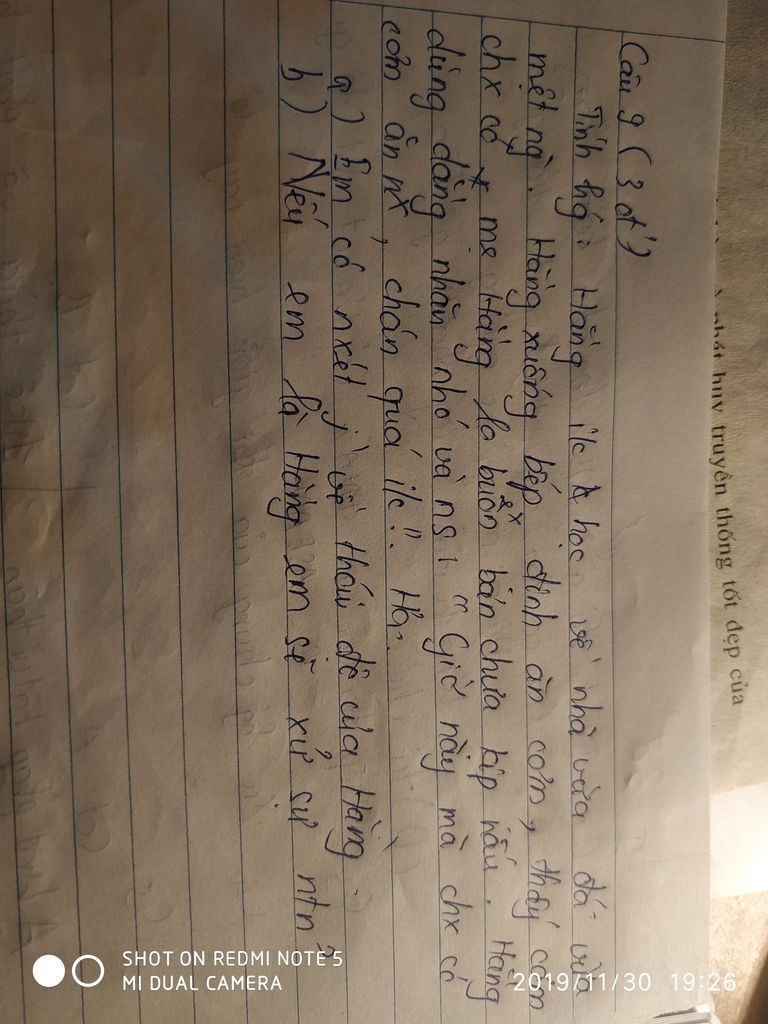 phát huy truyền thống tốt đẹp của
Câu 9 (3 đ)
Tình hg: Hằng đi học về nhà vừa đói vừa
mệt ng. Hằng xuống bếp định ăn cơm, thấy cơm
chx có mẹ Hằng lo buôn bán chưa kịp nấu. Hằng
dùng dằng nhăn nhó và nói "Giờ này mà chx có
cơm ăn nx, chán quá
a) Em có nxét j về thái độ của Hằng.
b) Nếu em là Hằng em sẽ xử sự ntn?
SHOT ON REDMI NOTE 5
MI DUAL CAMERA
2019/11/30 19:26